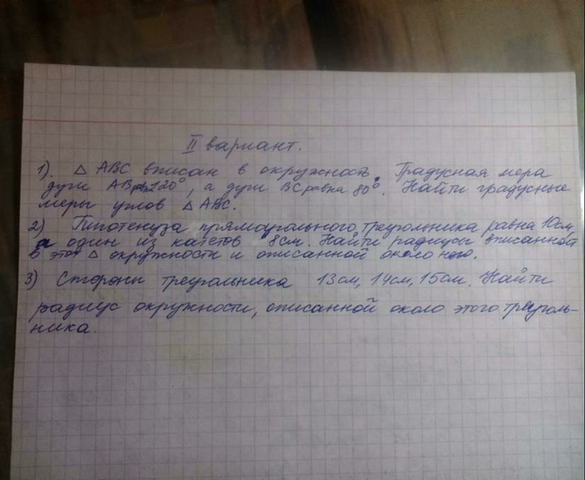 II вариант.
1). △ ABC вписан в окружность. Градусная мера
дуги AB равна 120°, а дуги BC равна 80°. Найти градусные
меры углов △ ABC.
2) Гипотенуза прямоугольного треугольника равна 10см
а один из катетов 8см. Найти радиусы вписанной
в этот △ окружности и описанной около него.
3) Стороны треугольника 13см, 14см, 15см. Найти
радиус окружности, описанной около этого треуголь-
ника.